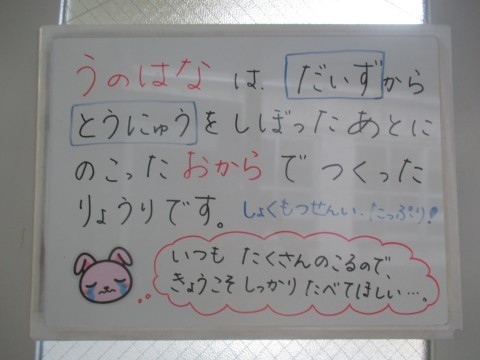 うのはな は、だいずから
とうにゅうをしぼったあとに
のこったおからで つくった
りょうりです。 しょくもつせんい・たっぷり!
いつも たくさんのこるので、
きょうこそ しっかり たべてほしい…。